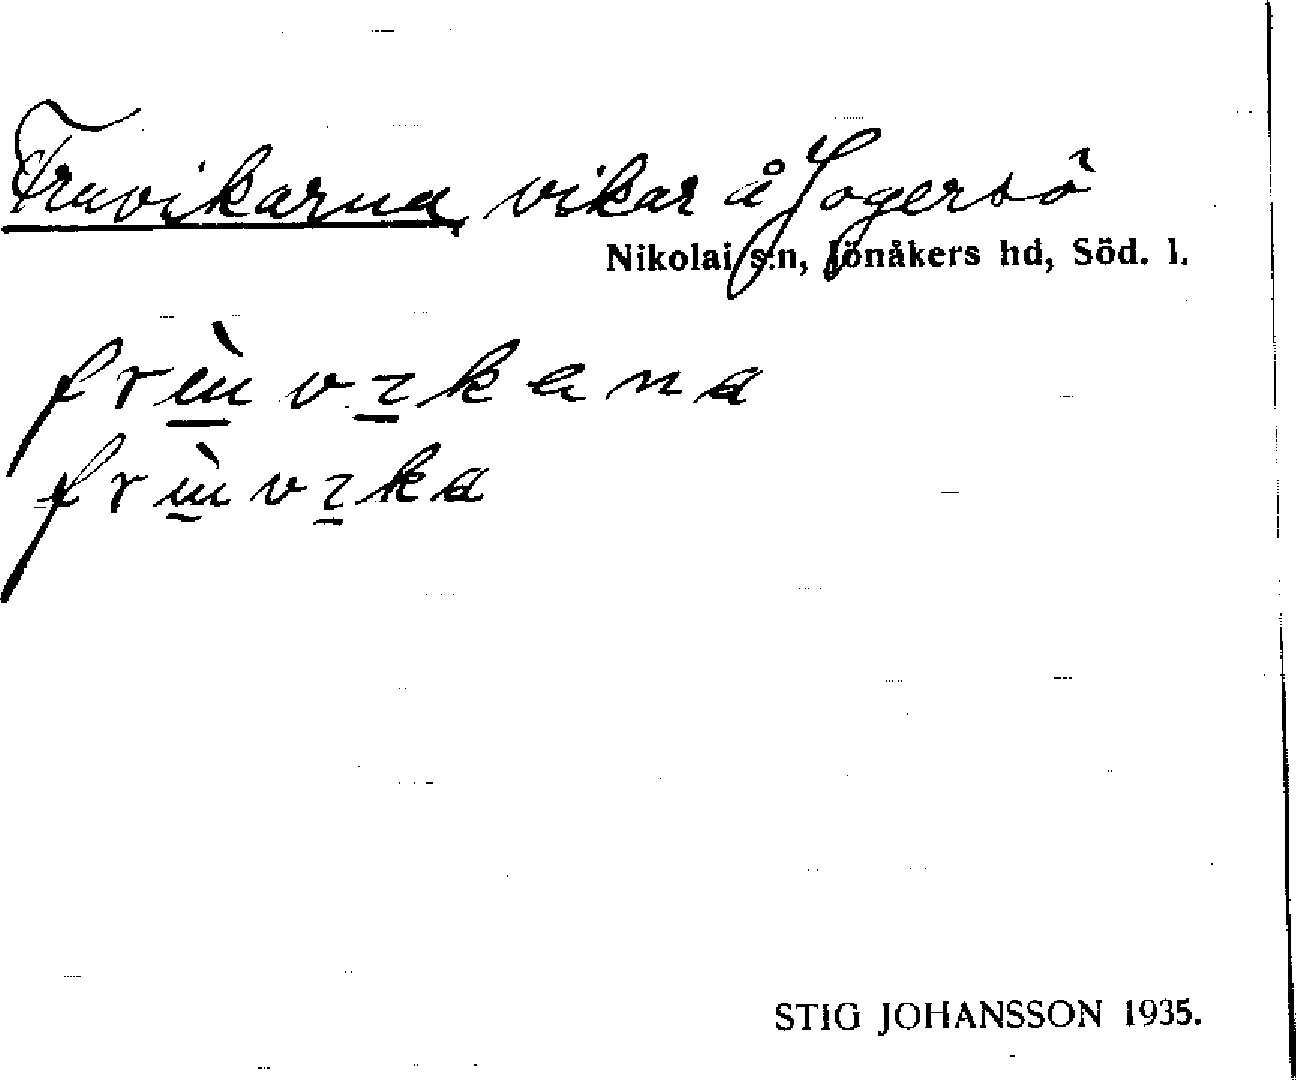 Fruvikarna, vikar å Jogersö
Nikolai s:n, Jönåkers hd, Söd. l.
frùvɩkana
frùvɩka
STIG JOHANSSON 1935.